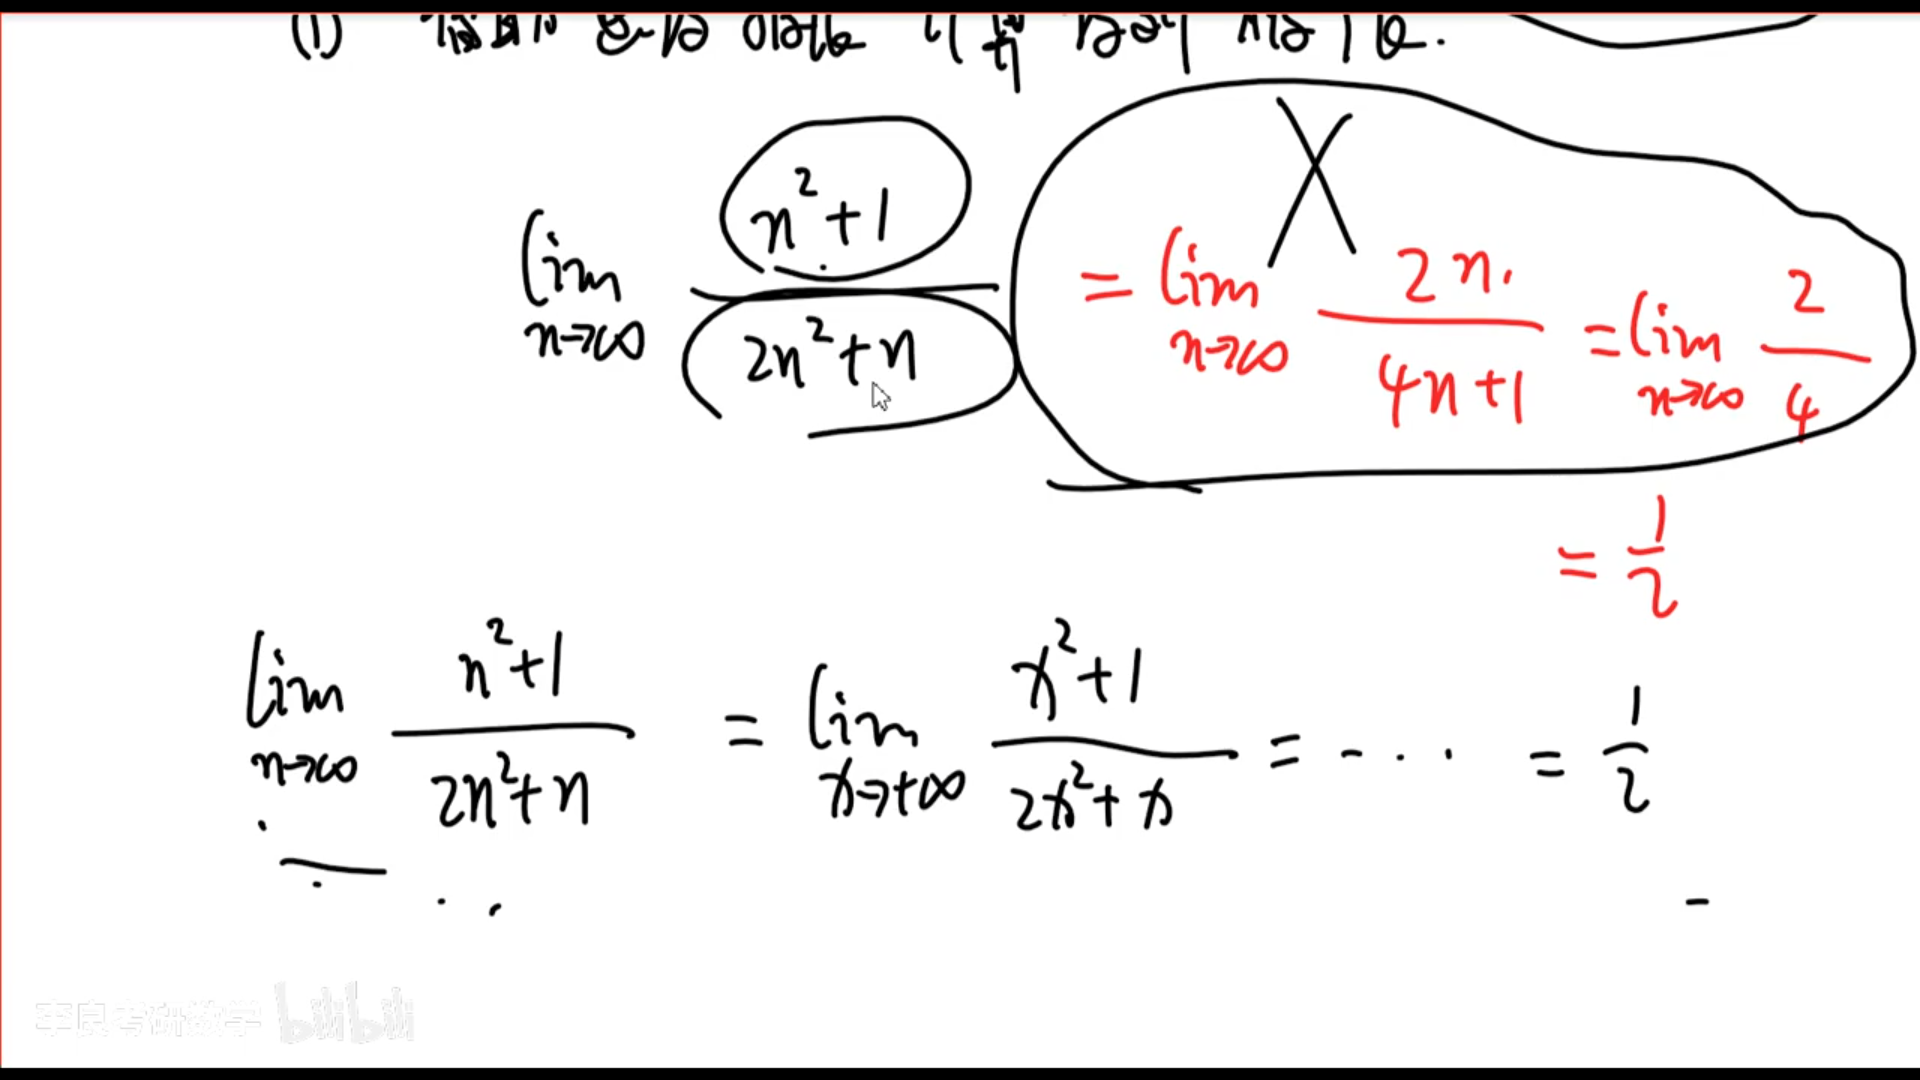 (1)
lim n→∞ (n²+1)/(2n²+n) = lim n→∞ 2n/(4n+1) = lim n→∞ 2/4
= 1/2
X
lim n→∞ (n²+1)/(2n²+n) = lim x→+∞ (x²+1)/(2x²+x) = ... = 1/2
李良考研数学 bilibili